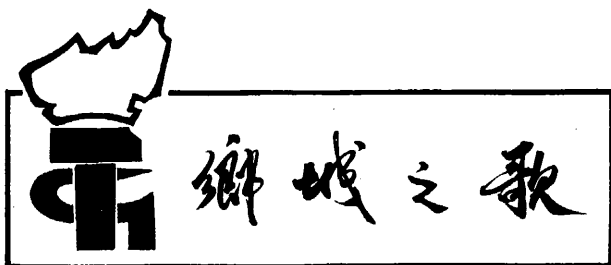 鄉城之歌